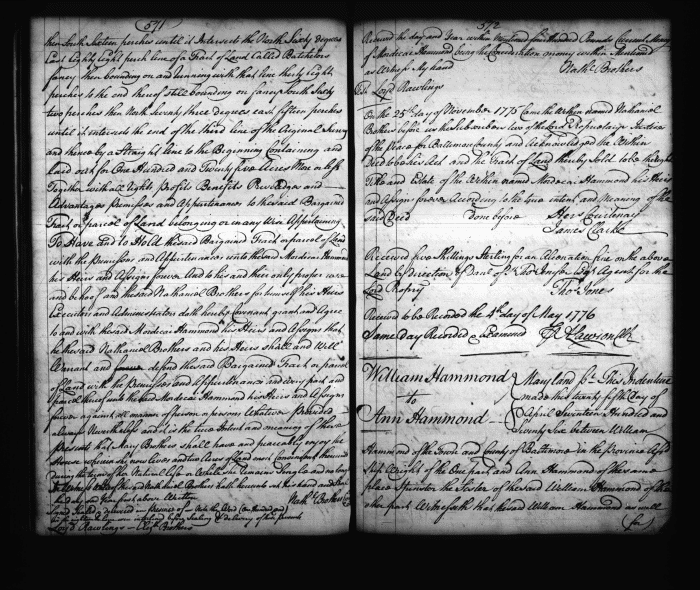 571
then South Sixteen perches until it Intersect the North Sixty degrees
East Eighty Eight perch line of a Tract of Land Called Batchelors
fancy then bounding on and running with that line thirty Eight
perches to the end thereof still bounding on fancy South Sixty
two perches then North Seventy three degrees East fifteen perches
until it intersects the end of the third line of the Original
and thence by a Straight line to the Beginning Containing and
laid out for One Hundred and Twenty five Acres More or less
Together with all Right profits Benefits Priviledges and
Advantages premises and Appurtenances to the said Bargained
Tract or parcel of Land belonging or in any wise Appertaining
To Have and to Hold the said Bargained Tract or parcel of Land
with the premisses and Appurtenances unto the said Mordecai Hammond
his Heirs and Assigns forever And to his and their only proper use
and behoof and the said Nathaniel Brothers for himself his Heirs
Executors and Administrators doth hereby Covenant grant and Agree
to and with the said Mordecai Hammond his Heirs and Assigns that
he the said Nathaniel Brothers and his Heirs shall and Will
Warrant and defend the said Bargained Tract or parcel
of Land with the premisses and Appurtenances and every part and
parcel thereof unto the said Mordecai Hammond his Heirs and Assigns
forever against all manner of person or persons Whatever provided
always Nevertheless and it is the true Intent and meaning of these
presents that Mary Brothers shall have and peaceably enjoy the
House wherein she now lives and two Acres of Land most Convenient
during the term of her Natural life or While she remains Single and no longer
In Witness the said Nath Brothers hath hereunto set his hand and
Seal day and Year first above Written Nathl Brothers
Signed Sealed & delivered in presence of Note the Word (One Hundred and
before Sealing & delivery of these presents
Loyd Rawlings Brothers
572
Received the day and Year within Mentioned Hundred Pounds Current Money
of Mordecai Hammond being the Consideration money within Mentioned
as Witness My hand Nathl Brothers
Loyd Rawlings
On the 25th day of November 1775 Came the Within Named Nathaniel
Brothers before us the Subscribers two of the Lord Proprietarys Justices
of the Peace for Baltimore County and Acknowledged the Within
Deed to be his Act and the Tract of Land thereby Sold to be the Right
Title and Estate of the Within named Mordecai Hammond his Heirs
and Assigns forever According to the true intent and Meaning of the
said Deed Done before Hers Courtenay
James Calhoun
Received five Shillings Sterling for an Alienation fine on the above
Land by direction of Danl of St Thos Jenifer Esqr Agent for the
Lord Propry Thos Jones
Received to be Recorded the 4th day of May 1776
Same day Recorded & Examined
William Hammond
to
Ann Hammond
Maryland ss This Indenture
made this twenty fifth Day of
April Seventeen Hundred and
Seventy Six between William
Hammond of the Town and County of Baltimore in the province Afsd
Ship Wright of the One part and Ann Hammond of the same
place Spinster the Sister of the said William Hammond of the
other part Witnesseth that the said William Hammond as well
for